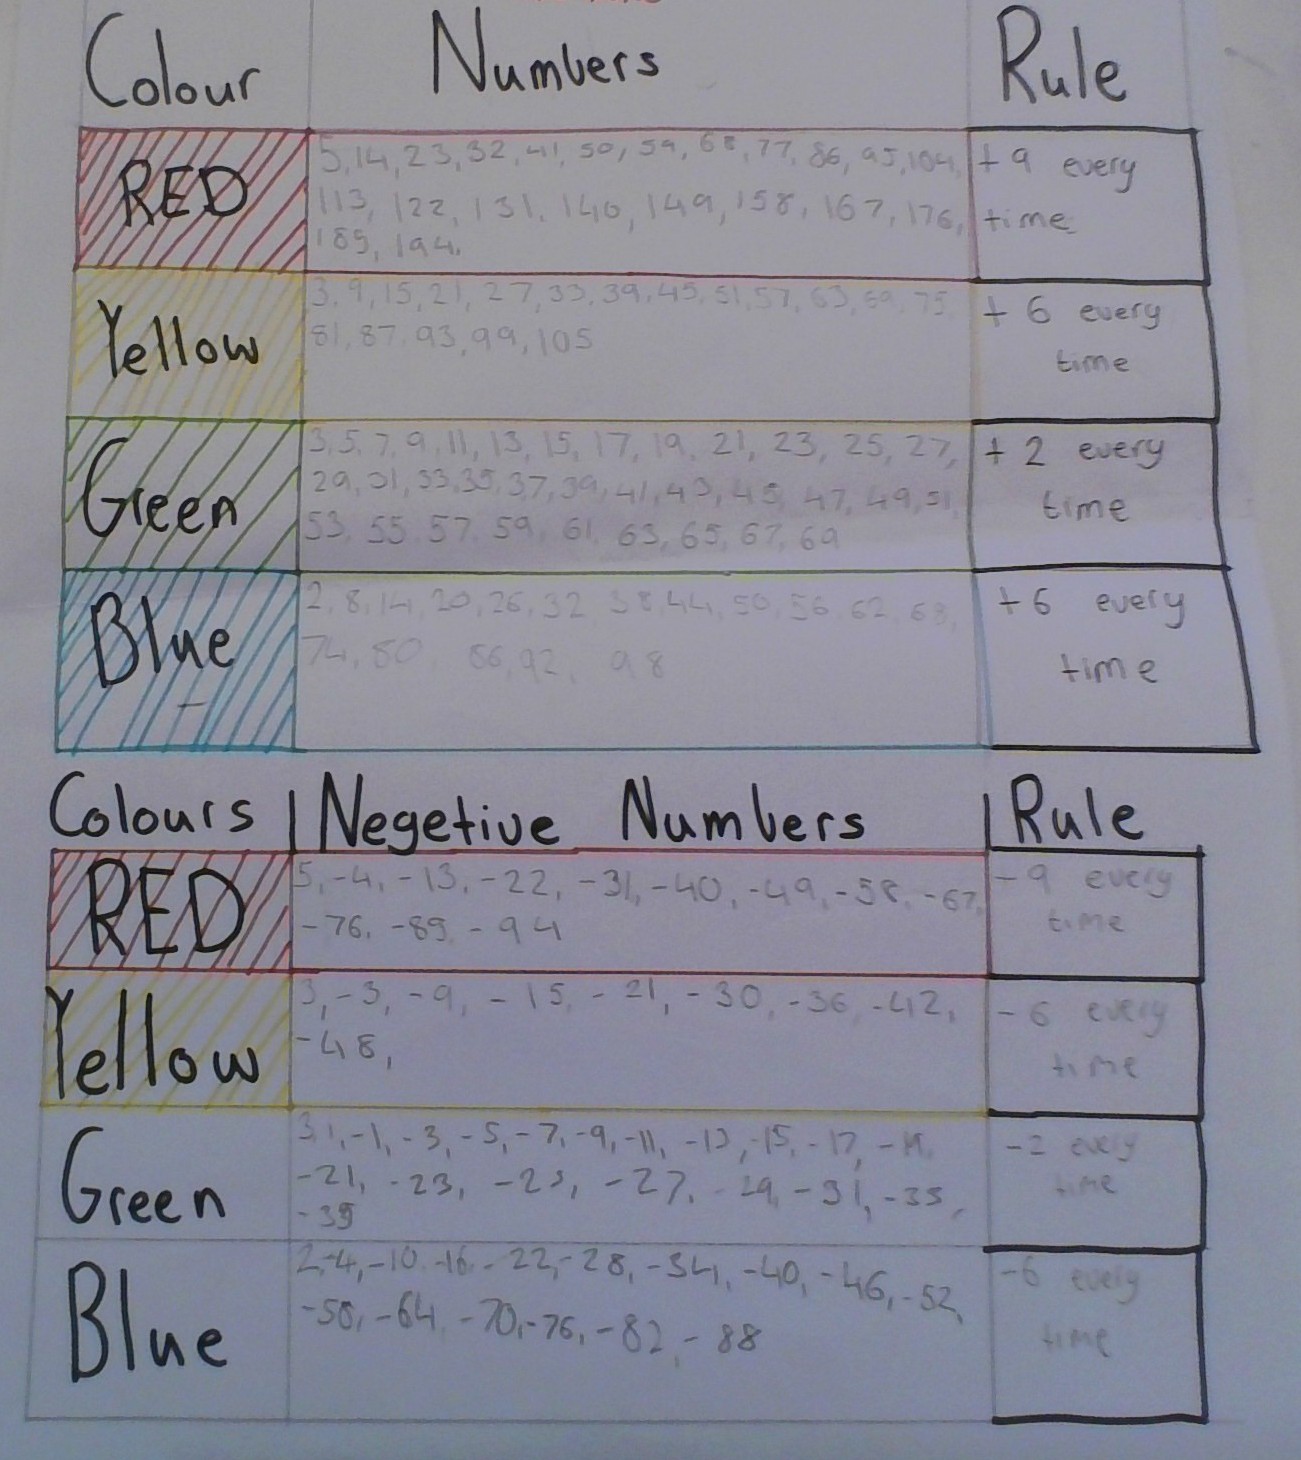 Colour Numbers Rule
RED
5, 14, 23, 32, 41, 50, 59, 68, 77, 86, 95, 104,
113, 122, 131, 140, 149, 158, 167, 176,
185, 194.
+9 every
time
Yellow
3, 9, 15, 21, 27, 33, 39, 45, 51, 57, 63, 69, 75,
81, 87, 93, 99, 105
+ 6 every
time
Green
3, 5, 7, 9, 11, 13, 15, 17, 19, 21, 23, 25, 27,
29, 31, 33, 35, 37, 39, 41, 43, 45, 47, 49, 51,
53, 55, 57, 59, 61, 63, 65, 67, 69
+ 2 every
time
Blue
2, 8, 14, 20, 26, 32 38, 44, 50, 56, 62, 68,
74, 80, 86, 92, 98
+6 every
time
Colours Negetive Numbers Rule
RED
5, -4, -13, -22, -31, -40, -49, -58, -67,
-76, -85, -94
-9 every
time
Yellow
3, -3, -9, -15, -21, -30, -36, -42,
-48,
-6 every
time
Green
3, 1, -1, -3, -5, -7, -9, -11, -13, -15, -17, -19,
-21, -23, -25, -27, -29, -31, -35,
-39
-2 every
time
Blue
2, -4, -10, -16, -22, -28, -34, -40, -46, -52,
-58, -64, -70, -76, -82, -88
-6 every
time